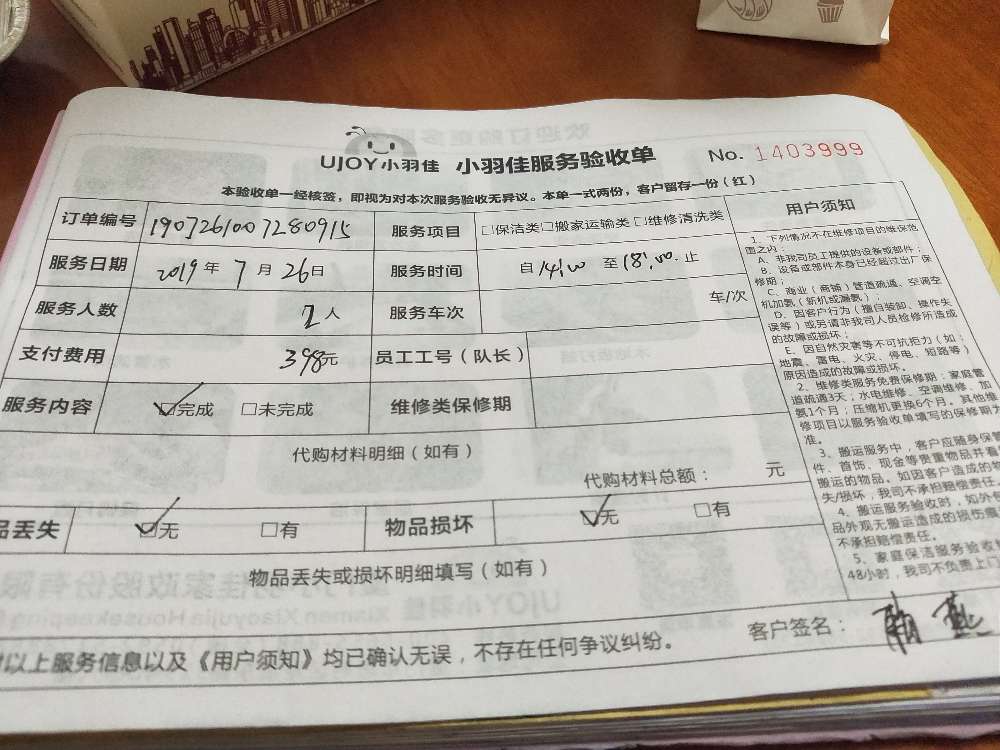 UJOY小羽佳 小羽佳服务验收单 No. 1403999
本验收单一经核签，即视为对本次服务验收无异议。本单一式两份，客户留存一份（红）
订单编号 1907261007280915 服务项目 □保洁类□搬家运输类□维修清洗类
服务日期 2019年7月26日 服务时间 自14:00至18:00止
服务人数 2人 服务车次 车/次
支付费用 398元 员工工号（队长）
服务内容 ☑完成 □未完成 维修类保修期
代购材料明细（如有）
代购材料总额： 元
品丢失 ☑无 □有 物品损坏 ☑无 □有
物品丢失或损坏明细填写（如有）
以上服务信息以及《用户须知》均已确认无误，不存在任何争议纠纷。
客户签名：
用户须知
1、下列情况不在维修项目的维保范
围之内：
A、非我司员工提供的设备或部件；
B、设备或部件本身已经超过出厂保
修期；
C、商业（商铺）管道疏通、空调空
机加氨（新机或漏氨）；
D、因客户行为（擅自装卸、操作失
误等）或另请非我司人员检修所造成
的故障或损坏；
E、因自然灾害等不可抗拒力（如：
地震、雷电、火灾、停电、短路等）
原因造成的故障或损坏。
2、维修类服务免费保修期：家庭管
道疏通3天；水电维修、空调维修、加
氨1个月；压缩机更换6个月。其他维
修项目以服务验收单填写的保修期为
准。
3、搬运服务中，客户应随身保管
件、首饰、现金等贵重物品并看
搬运的物品。如因客户造成的物
失/损坏，我司不承担赔偿责任。
4、搬运服务验收时，如外包
品外观无搬运造成的损伤痕
不承担赔偿责任。
5、家庭保洁服务验收
48小时，我司不负责上门